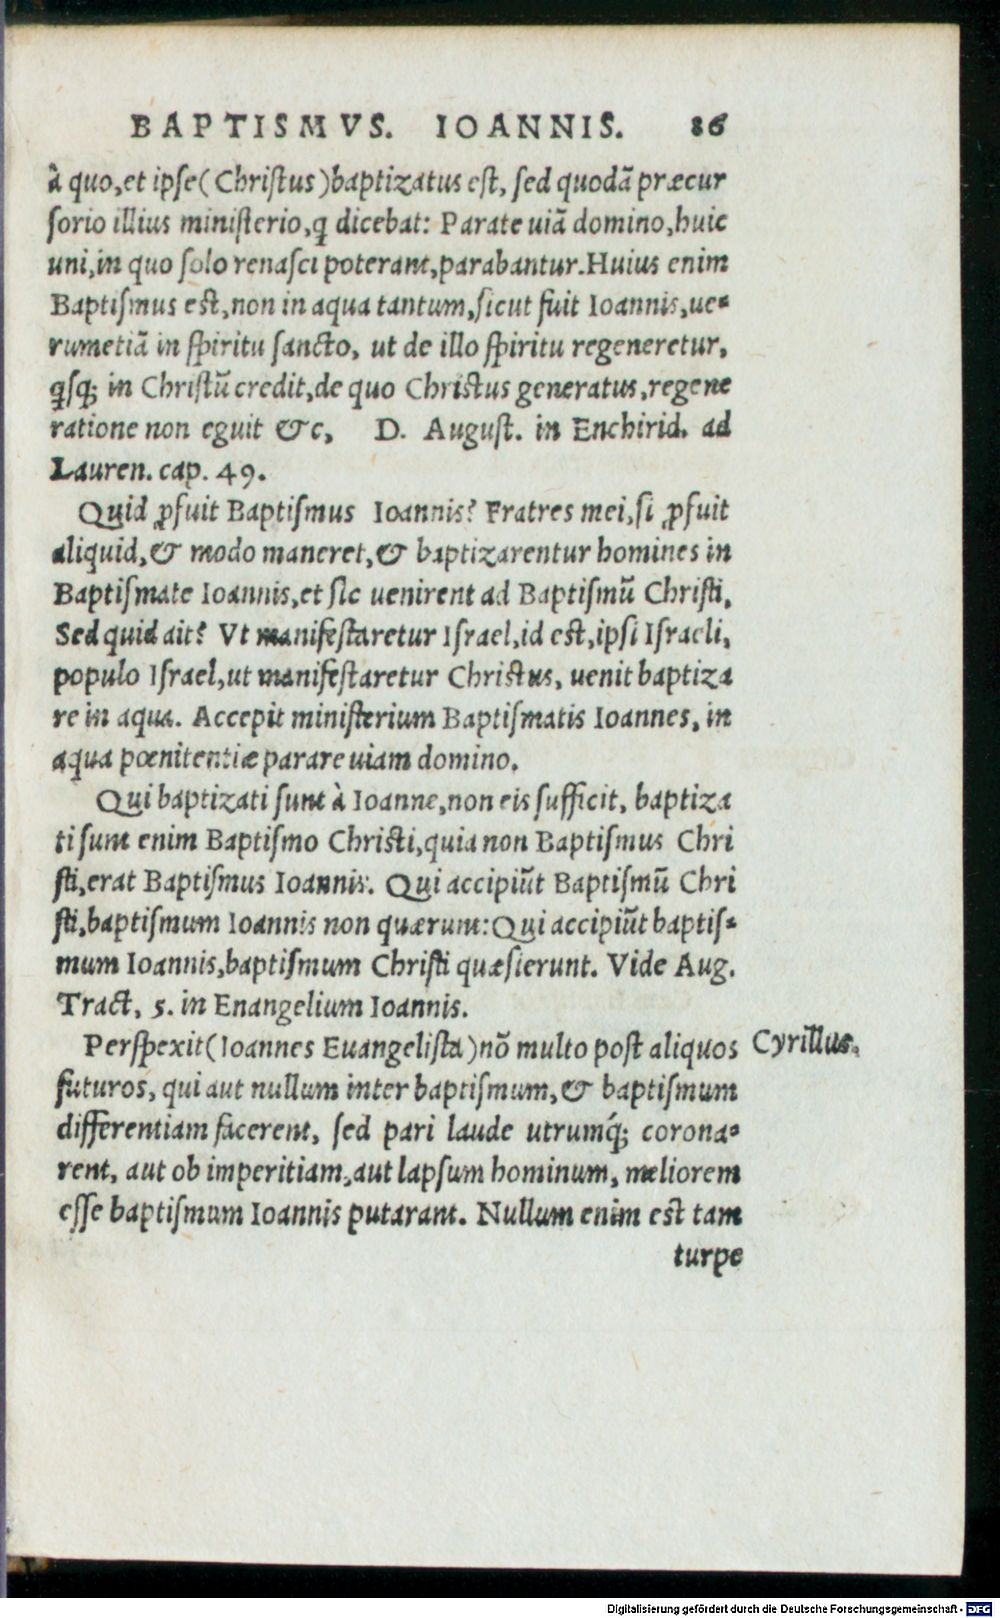 BAPTISMVS. IOANNIS. 86
à quo,et ipse(Christus)baptizatus est, sed quodã præcur
sorio illius ministerio,q dicebat: Parate uiã domino,huic
uni,in quo solo renasci poterant,parabantur.Huius enim
Baptismus est,non in aqua tantum,sicut fuit Ioannis,ue-
rumetiã in spiritu sancto, ut de illo spiritu regeneretur,
qsq; in Christũ credit,de quo Christus generatus,regene
ratione non eguit &c, D. August. in Enchirid. ad
Lauren. cap. 49.
Quid ꝓfuit Baptismus Ioannis? Fratres mei,si ꝓfuit
aliquid,& modo maneret,& baptizarentur homines in
Baptismate Ioannis,et sic uenirent ad Baptismũ Christi,
Sed quid ait? Vt manifestaretur Israel,id est,ipsi Israeli,
populo Israel,ut manifestaretur Christus, uenit baptiza
re in aqua. Accepit ministerium Baptismatis Ioannes, in
aqua pœnitentiæ parare uiam domino.
Qui baptizati sunt à Ioanne,non eis sufficit, baptiza
ti sunt enim Baptismo Christi,quia non Baptismus Chri
sti,erat Baptismus Ioannis. Qui accipiũt Baptismũ Chri
sti,baptismum Ioannis non quærunt:Qui accipiũt baptis-
mum Ioannis,baptismum Christi quæsierunt. Vide Aug.
Tract, 5. in Enangelium Ioannis.
Perspexit(Ioannes Euangelista)nõ multo post aliquos
Cyrillus.
futuros, qui aut nullum inter baptismum,& baptismum
differentiam facerent, sed pari laude utrumq́; corona-
rent, aut ob imperitiam,aut lapsum hominum, meliorem
esse baptismum Ioannis putarant. Nullum enim est tam
turpe
Digitalisierung gefördert durch die Deutsche Forschungsgemeinschaft - DFG